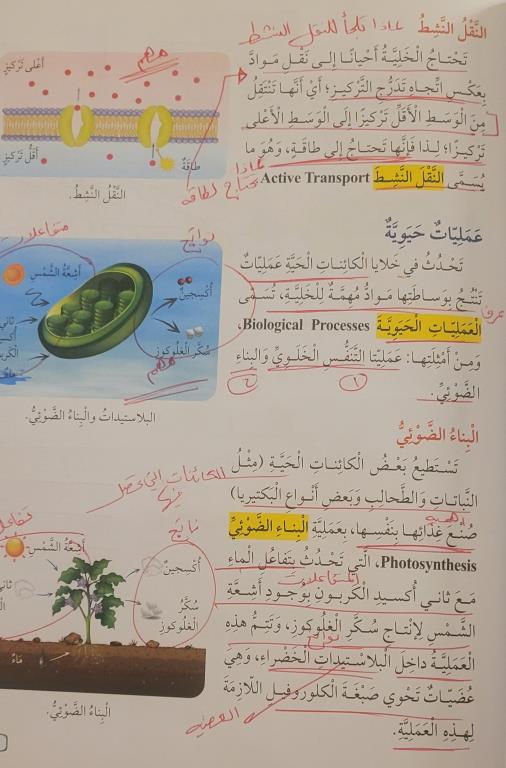 النَّقْلُ النَّشِطُ
لماذا تلجأ للنقل النشط
تَحْتاجُ الْخَلِيَّةُ أَحْيانًا إِلى نَقْلِ مَوادَّ
بِعَكْسِ اتِّجاهِ تَدَرُّجِ التَّرْكيزِ؛ أَيْ أَنَّها تَنْتَقِلُ
مِنَ الْوَسَطِ الْأَقَلِّ تَرْكيزًا إِلى الْوَسَطِ الْأَعْلى
تَرْكيزًا؛ لِذا فَإِنَّها تَحْتاجُ إِلى طاقَةٍ، وَهُوَ ما
يُسَمَّى النَّقْلَ النَّشِطَ Active Transport.
لماذا
تحتاج لطاقه
مهم
أَعْلى تَرْكيزٍ
أَقَلُّ تَرْكيزٍ
طاقَةٌ
النَّقْلُ النَّشِطُ.
عَمَلِيّاتٌ حَيَوِيَّةٌ
تَحْدُثُ في خَلايا الْكائِناتِ الْحَيَّةِ عَمَلِيّاتٌ
تَنْتُجُ بِوِساطَتِها مَوادُّ مُهِمَّةٌ لِلْخَلِيَّةِ، تُسَمَّى
الْعَمَلِيّاتِ الْحَيَوِيَّةَ Biological Processes،
وَمِنْ أَمْثِلَتِها: عَمَلِيَّتا التَّنَفُّسِ الْخَلَوِيِّ وَالْبِناءِ
الضَّوْئِيِّ.
نواتج
أَشِعَّةُ الشَّمْسِ
أُكْسِجينٌ
سُكَّرُ الْغلُوكوزِ
ثاني
مهم
البلاستيداتُ والْبِناءُ الضَّوْئِيُّ.
الْبِناءُ الضَّوْئِيُّ
تَسْتَطيعُ بَعْضُ الْكائِناتِ الْحَيَّةِ (مِثْلُ
النَّباتاتِ وَالطَّحالِبِ وَبَعْضِ أَنْواعِ الْبَكْتيريا)
صُنْعَ غِذائِها بِنَفْسِها، بِعَمَلِيَّةِ الْبِناءِ الضَّوْئِيِّ
Photosynthesis، الَّتي تَحْدُثُ بِتَفاعُلِ الْماءِ
مَعَ ثاني أُكْسيدِ الْكَرْبونِ بِوُجودِ أَشِعَّةِ
الشَّمْسِ لِإِنْتاجِ سُكَّرِ الْغلُوكوزِ، وَتَتِمُّ هذِهِ
الْعَمَلِيَّةُ داخِلَ الْبلاسْتيداتِ الْخَضْراءِ، وَهِيَ
عُضَيّاتٌ تَحْوي صَبْغَةَ الْكلوروفيل اللّازِمَةَ
لِهذِهِ الْعَمَلِيَّةِ.
نواتج
أَشِعَّةُ الشَّمْسِ
أُكْسِجينٌ
ثاني
سُكَّرُ
الْغلُوكوزِ
ماءٌ
الْبِناءُ الضَّوْئِيُّ.